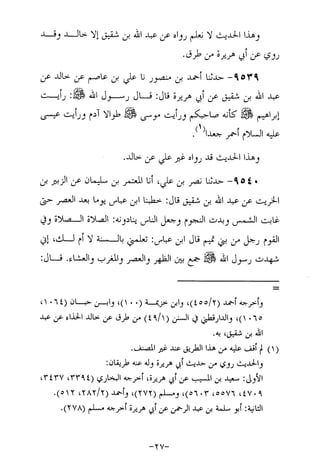 وهذا الحديث لا نعلم رواه عن عبد الله بن شقيق إلا خالد وقد
روي عن أبي هريرة من طرق.
٩٥٣٩- حدثنا أحمد بن منصور نا علي بن عاصم عن خالد عن
عبد الله بن شقيق عن أبي هريرة قال: قال رسول الله ﷺ: رأيت
إبراهيم ﷺ كأنه صاحبكم ورأيت موسى ﷺ طوالا آدم ورأيت عيسى
عليه السلام أحمر جعدا(١).
وهذا الحديث قد رواه غير علي عن خالد.
٩٥٤٠- حدثنا نصر بن علي، أنا المعتمر بن سليمان عن الزبير بن
الخريت عن عبد الله بن شقيق قال: خطبنا ابن عباس يوما بعد العصر حتى
غابت الشمس وبدت النجوم وجعل الناس ينادونه: الصلاة الصلاة وفي
القوم رجل من بني تميم قال ابن عباس: تعلمني بالسنة لا أم لك، إني
شهدت رسول الله ﷺ جمع بين الظهر والعصر والمغرب والعشاء. قال:
=
وأخرجه أحمد (٤٥٥/٢)، وابن خزيمة (١٠٠)، وابن حبان (١٠٦٤،
١٠٦٥)، والدارقطني في السنن (٤٩/١) من طرق عن خالد الحذاء عن عبد
الله بن شقيق، به.
(١) لم أقف عليه من هذا الطريق عند غير المصنف.
والحديث روي من حديث أبي هريرة وله عنه طريقان:
الأولى: سعيد بن المسيب عن أبي هريرة، أخرجه البخاري (٣٣٩٤، ٣٤٣٧،
٤٧٠٩، ٥٥٧٦، ٥٦٠٣)، ومسلم (٢٧٢)، وأحمد (٢٨٢/٢، ٥١٢).
الثانية: أبو سلمة بن عبد الرحمن عن أبي هريرة أخرجه مسلم (٢٧٨).
-٢٧-